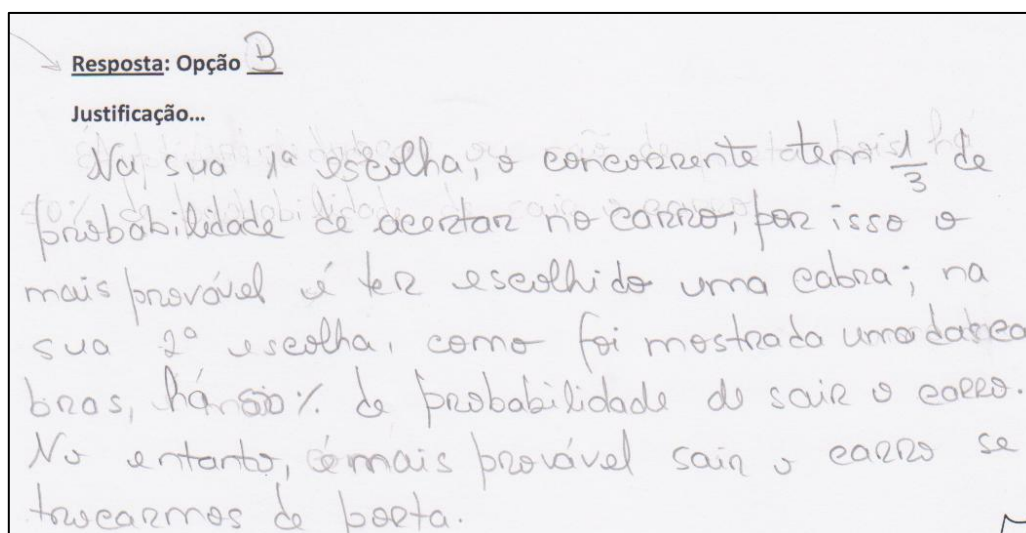 Resposta: Opção B
Justificação...
Na sua 1ª escolha, o concorrente tem 1/3 de
probabilidade de acertar no carro, por isso o
mais provável é ter escolhido uma cabra; na
sua 2ª escolha, como foi mostrada uma das ca
bras, há 50% de probabilidade de sair o carro.
No entanto, é mais provável sair o carro se
trocarmos de porta.